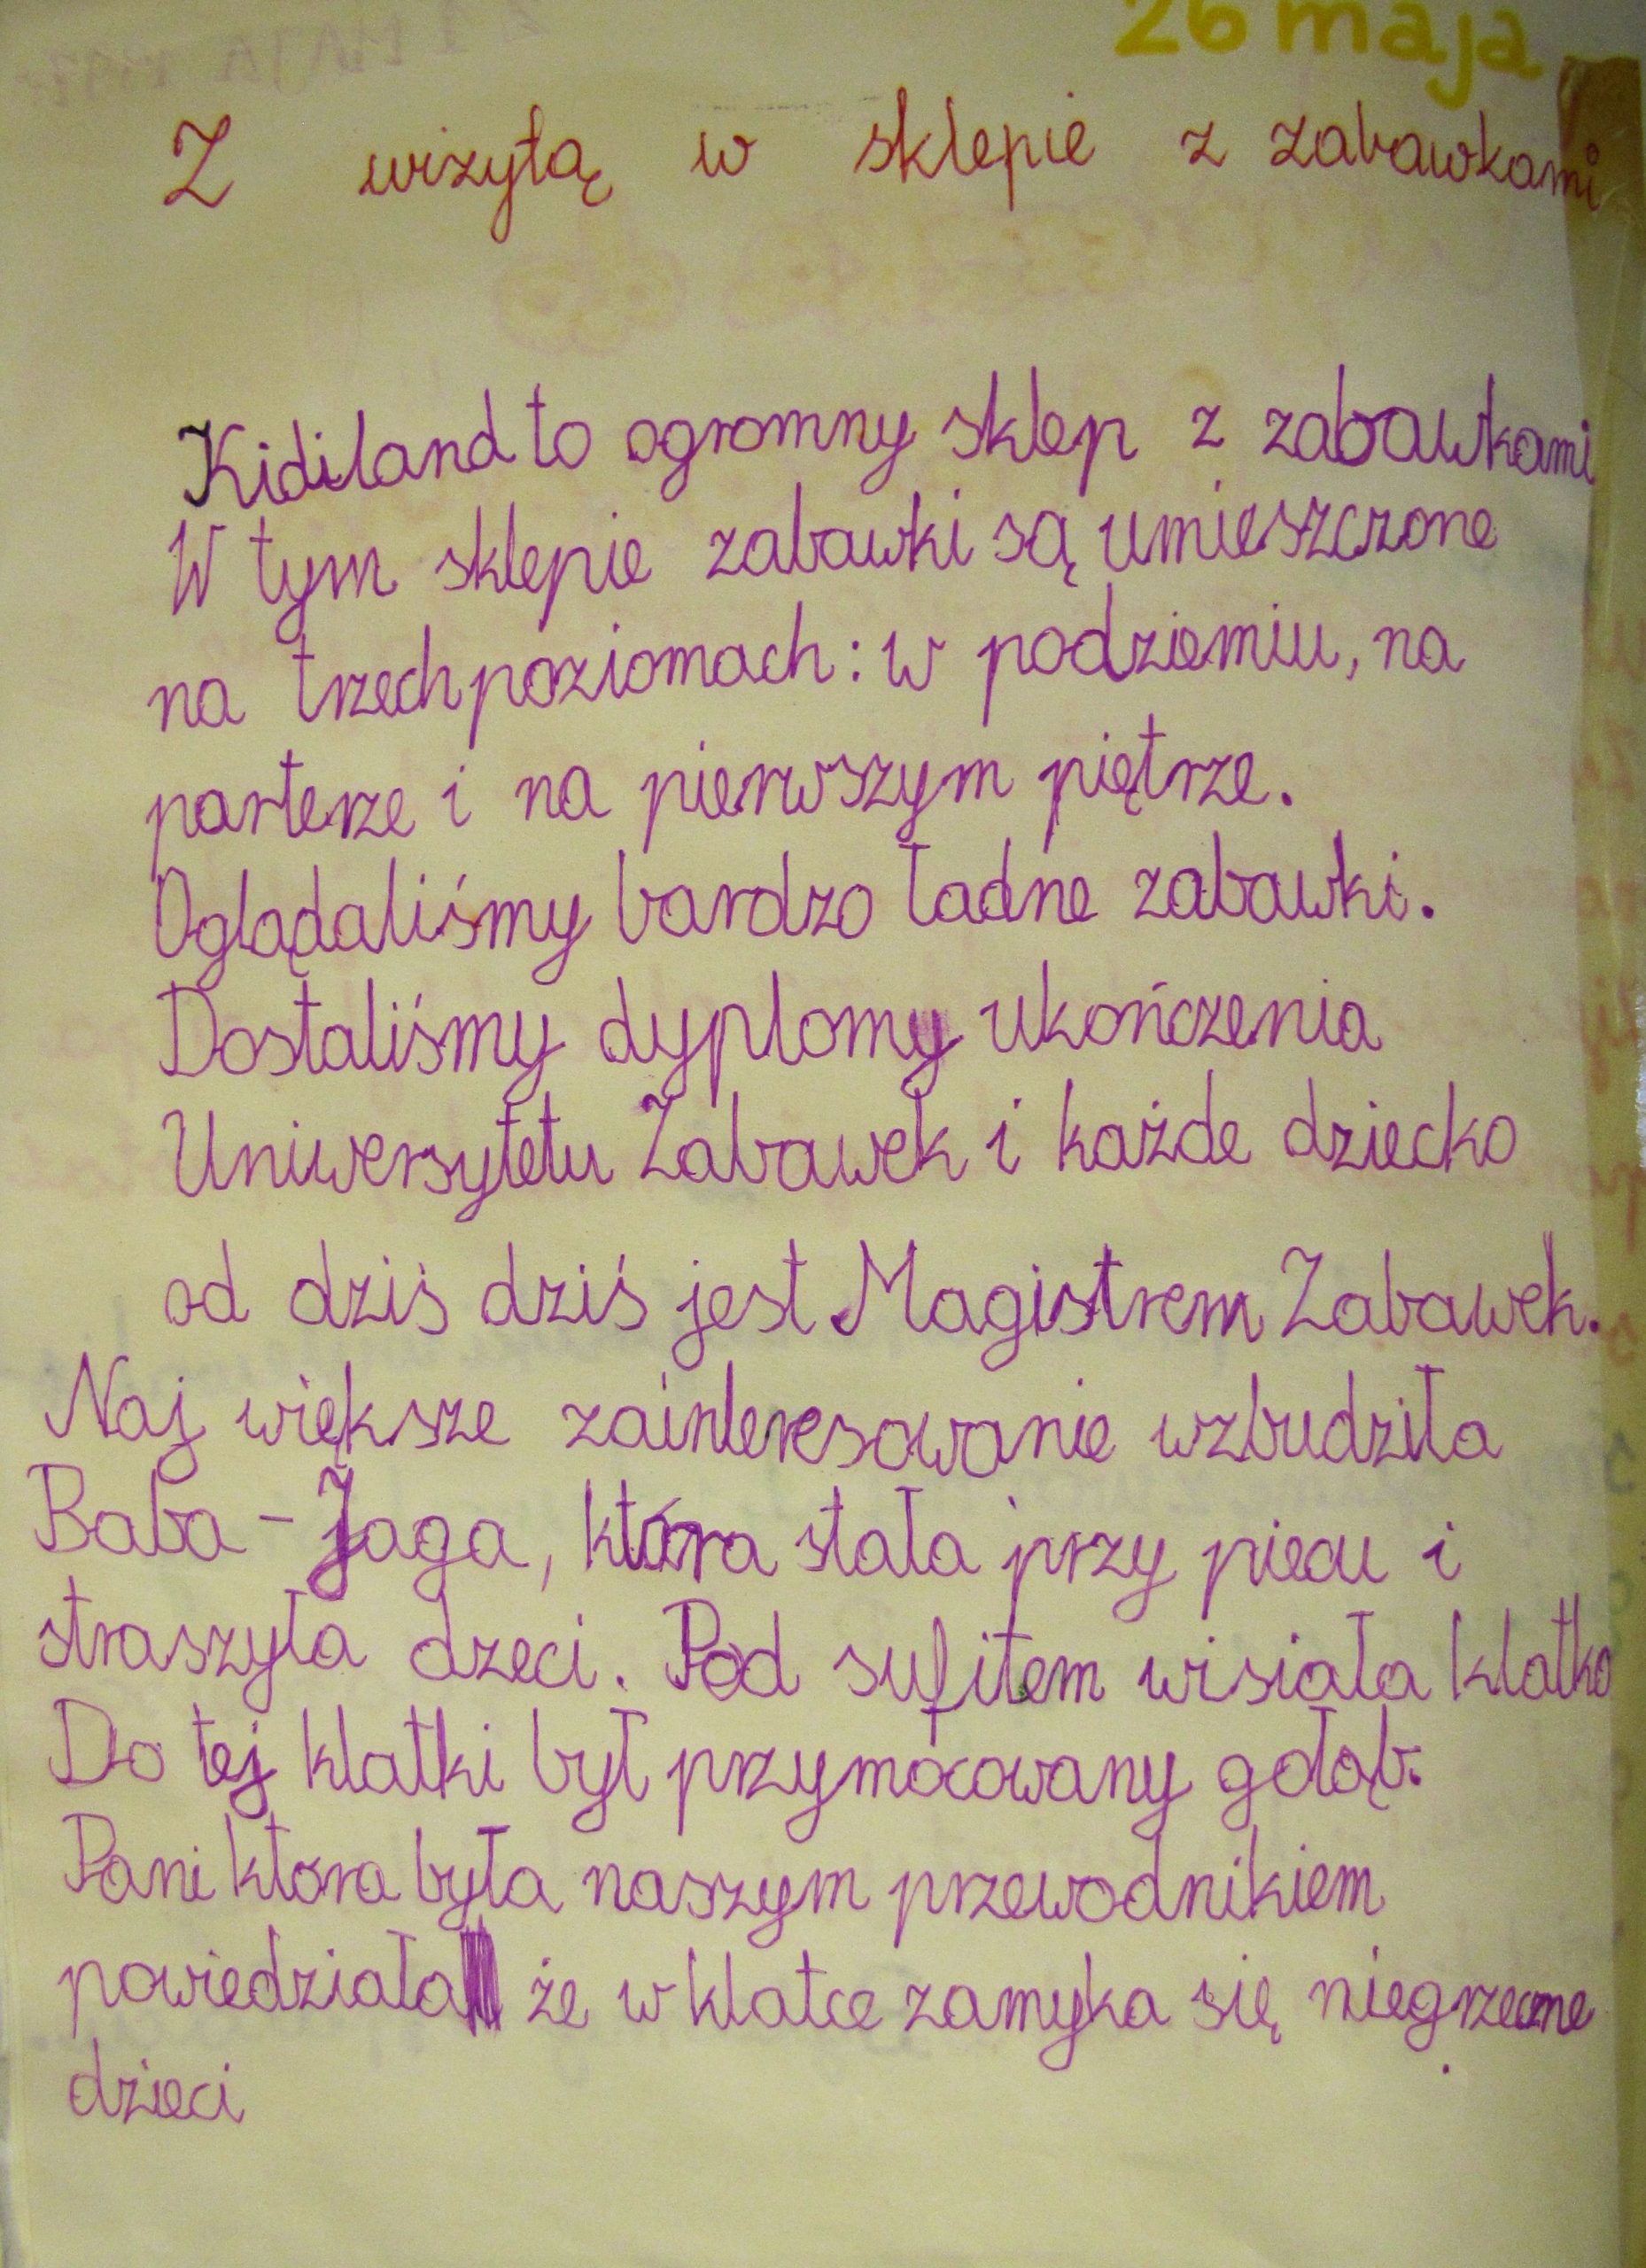 26 maja
Z wizytą w sklepie z zabawkami
Kidiland to ogromny sklep z zabawkami
W tym sklepie zabawki są umieszczone
na trzech poziomach: w podziemiu, na
parterze i na pierwszym piętrze.
Oglądaliśmy bardzo ładne zabawki.
Dostaliśmy dyplomy ukończenia
Uniwersytetu Zabawek i każde dziecko
od dziś dziś jest Magistrem Zabawek.
Naj większe zainteresowanie wzbudziła
Baba-Jaga, która stała przy piecu i
straszyła dzeci. Pod sufitem wisiała klatka
Do tej klatki był przymocowany gołąb.
Pani która była naszym przewodnikiem
powiedziała że w klatce zamyka się niegrzeczne
dzieci.